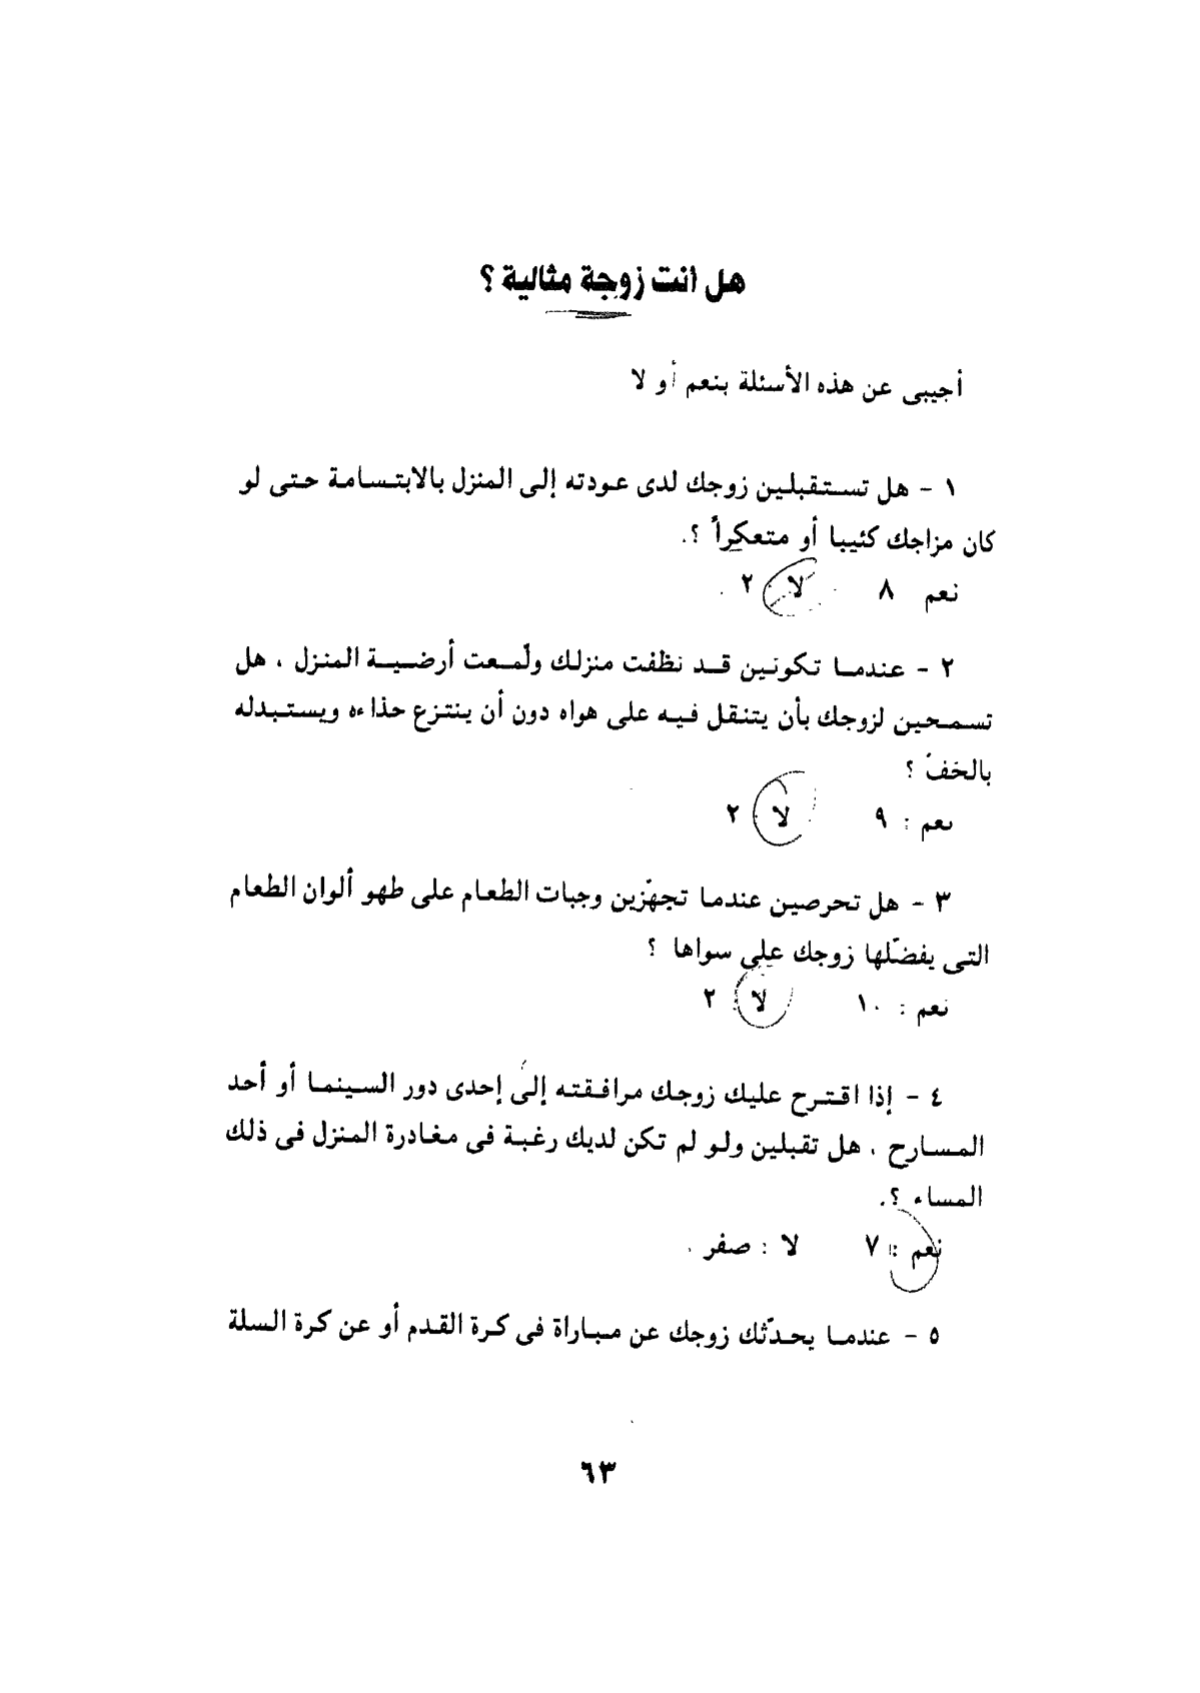 هل انت زوجة مثالية ؟
أجيبى عن هذه الأسئلة بنعم أو لا
١ - هل تستقبلين زوجك لدى عودته إلى المنزل بالابتسامة حتى لو
كان مزاجك كئيبا أو متعكراً ؟.
نعم ٨ لا ٢ .
٢ - عندما تكونين قد نظفت منزلك ولّمعت أرضية المنزل ، هل
تسمحين لزوجك بأن يتنقل فيه على هواه دون أن ينتزع حذاءه ويستبدله
بالخفّ ؟
نعم : ٩ لا ٢
٣ - هل تحرصين عندما تجهّزين وجبات الطعام على طهو ألوان الطعام
التى يفضّلها زوجك على سواها ؟
نعم : ١٠ لا ٢
٤ - إذا اقترح عليك زوجك مرافقته إلى إحدى دور السينما أو أحد
المسارح ، هل تقبلين ولو لم تكن لديك رغبة فى مغادرة المنزل فى ذلك
المساء ؟.
نعم : ٧ لا : صفر .
٥ - عندما يحدّثك زوجك عن مباراة فى كرة القدم أو عن كرة السلة
٦٣